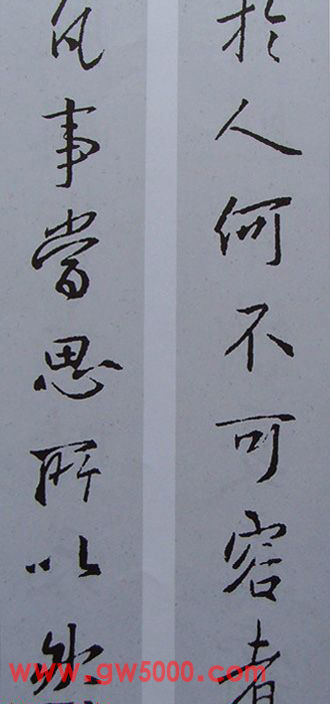 於人何不可容者
凡事當思所以然
www.gw5000.com